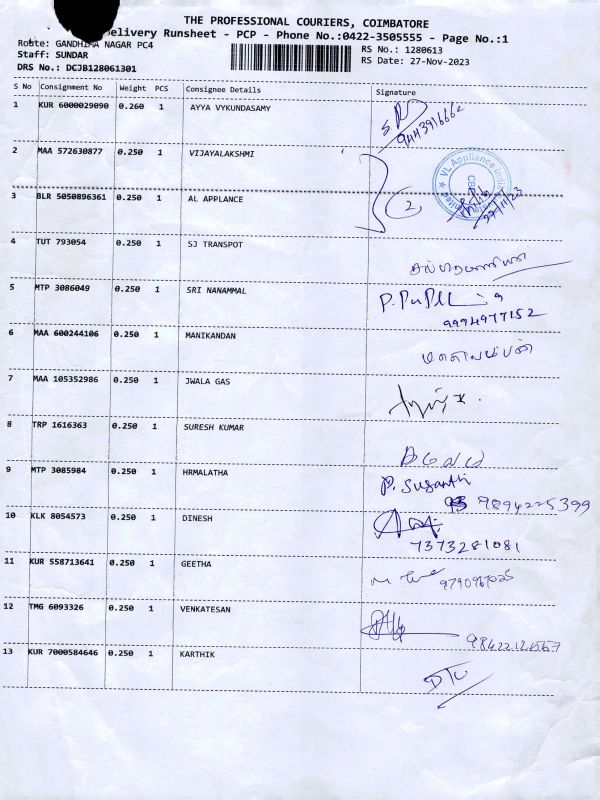 THE PROFESSIONAL COURIERS, COIMBATORE
Delivery Runsheet - PCP - Phone No.:0422-3505555 - Page No.:1
Route: GANDHIMA NAGAR PC4
RS No.: 1280613
Staff: SUNDAR
RS Date: 27-Nov-2023
DRS No.: DCJB128061301
S No Consignment No Weight PCS Consignee Details Signature
1 KUR 6000029090 0.260 1 AYYA VYKUNDASAMY
2 MAA 572630877 0.250 1 VIJAYALAKSHMI
VL Appliance
3 BLR 5050896361 0.250 1 AL APPLANCE
2
27/11/23
4 TUT 793054 0.250 1 SJ TRANSPOT
5 MTP 3086049 0.250 1 SRI NANAMMAL
9994977152
6 MAA 600244106 0.250 1 MANIKANDAN
7 MAA 105352986 0.250 1 JWALA GAS
8 TRP 1616363 0.250 1 SURESH KUMAR
9 MTP 3085984 0.250 1 HRMALATHA
P. Susanth
9894225399
10 KLK 8054573 0.250 1 DINESH
7373281081
11 KUR 558713641 0.250 1 GEETHA
12 TMG 6093326 0.250 1 VENKATESAN
13 KUR 7000584646 0.250 1 KARTHIK